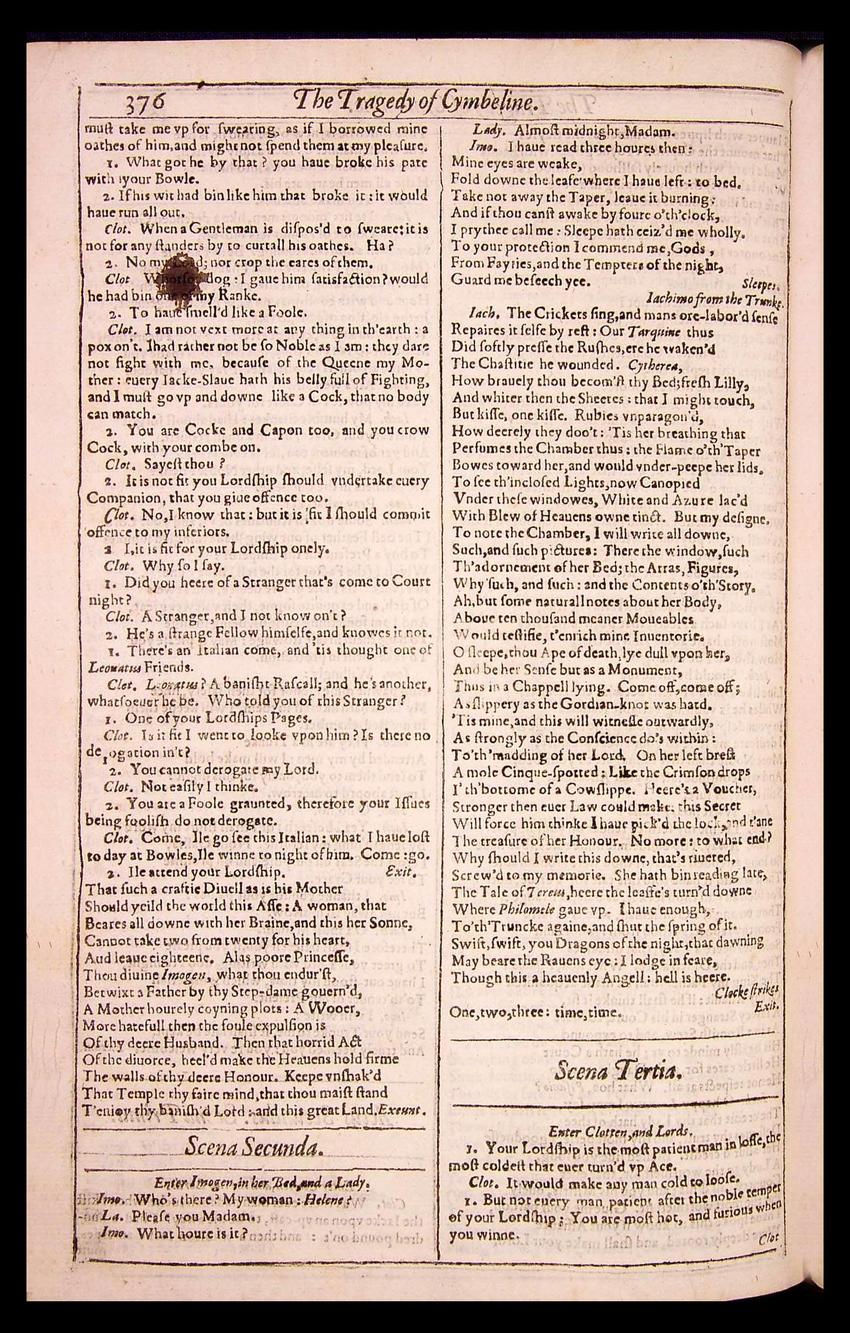 376 The Tragedy of Cymbeline.
muſt take me vp for ſwearing, as if I borrowed mine
oathes of him, and might not ſpend them at my pleaſure.
1. What got he by that? you haue broke his pate
with your Bowle.
2. If his wit had bin like him that broke it: it would
haue run all out.
Clot. When a Gentleman is diſpos'd to ſweare: it is
not for any ſtanders by to curtall his oathes. Ha?
2. No my Lord; nor crop the eares of them.
Clot Whorſon dog: I gaue him ſatisfaction? would
he had bin one of my Ranke.
2. To haue ſmell'd like a Foole.
Clot. I am not vext more at any thing in th'earth: a
pox on't. I had rather not be ſo Noble as I am: they dare
not fight with me, becauſe of the Queene my Mo-
ther: euery Iacke-Slaue hath his belly full of Fighting,
and I muſt go vp and downe like a Cock, that no body
can match.
2. You are Cocke and Capon too, and you crow
Cock, with your combe on.
Clot. Sayeſt thou?
2. It is not fit you Lordſhip ſhould vndertake euery
Companion, that you giue offence too.
Clot. No, I know that: but it is fit I ſhould commit
offence to my inferiors.
2 I, it is fit for your Lordſhip onely.
Clot. Why ſo I ſay.
1. Did you heere of a Stranger that's come to Court
night?
Clot. A Stranger, and I not know on't?
2. He's a ſtrange Fellow himſelfe, and knowes it not.
1. There's an Italian come, and 'tis thought one of
Leonatus Friends.
Clot. Leonatus? A baniſht Raſcall; and he's another,
whatſoeuer he be. Who told you of this Stranger?
1. One of your Lordſhips Pages.
Clot. Is it fit I went to looke vpon him? Is there no
derogation in't?
2. You cannot derogate my Lord.
Clot. Not eaſily I thinke.
2. You are a Foole graunted, therefore your Iſſues
being fooliſh do not derogate.
Clot. Come, Ile go ſee this Italian: what I haue loſt
to day at Bowles, Ile winne to night of him. Come: go.
2. Ile attend your Lordſhip. Exit.
That ſuch a craftie Diuell as is his Mother
Should yeild the world this Aſſe: A woman, that
Beares all downe with her Braine, and this her Sonne,
Cannot take two from twenty for his heart,
And leaue eighteene. Alas poore Princeſſe,
Thou diuine Imogen, what thou endur'ſt,
Betwixt a Father by thy Step-dame gouern'd,
A Mother hourely coyning plots: A Wooer,
More hatefull then the foule expulſion is
Of thy deere Husband. Then that horrid Act
Of the diuorce, heel'd make the Heauens hold firme
The walls of thy deere Honour. Keepe vnſhak'd
That Temple thy faire mind, that thou maiſt ſtand
T'enioy thy baniſh'd Lord: and this great Land. Exeunt.
Scena Secunda.
Enter Imogen, in her Bed, and a Lady.
Imo. Who's there? My woman: Helene?
La. Pleaſe you Madam.
Imo. What houre is it?
Lady. Almoſt midnight, Madam.
Imo. I haue read three houres then:
Mine eyes are weake,
Fold downe the leafe where I haue left: to bed.
Take not away the Taper, leaue it burning:
And if thou canſt awake by foure o'th'clock,
I prythee call me: Sleepe hath ceiz'd me wholly.
To your protection I commend me, Gods,
From Fayries, and the Tempters of the night,
Guard me beſeech yee. Sleepes.
Iachimo from the Trunke.
Iach. The Crickets ſing, and mans ore-labor'd ſenſe
Repaires it ſelfe by reſt: Our Tarquine thus
Did ſoftly preſſe the Ruſhes, ere he waken'd
The Chaſtitie he wounded. Cytherea,
How brauely thou becom'ſt thy Bed; freſh Lilly,
And whiter then the Sheetes: that I might touch,
But kiſſe, one kiſſe. Rubies vnparagon'd,
How deerely they doo't: 'Tis her breathing that
Perfumes the Chamber thus: the Flame o'th'Taper
Bowes toward her, and would vnder-peepe her lids.
To ſee th'incloſed Lights, now Canopied
Vnder theſe windowes, White and Azure lac'd
With Blew of Heauens owne tinct. But my deſigne.
To note the Chamber, I will write all downe,
Such, and ſuch pictures: There the window, ſuch
Th'adornement of her Bed; the Arras, Figures,
Why ſuch, and ſuch: and the Contents o'th'Story.
Ah, but ſome naturall notes about her Body,
Aboue ten thouſand meaner Moueables
Would teſtifie, t'enrich mine Inuentorie.
O ſleepe, thou Ape of death, lye dull vpon her,
And be her Senſe but as a Monument,
Thus in a Chappell lying. Come off, come off;
As ſlippery as the Gordian-knot was hard.
'Tis mine, and this will witneſſe outwardly,
As ſtrongly as the Conſcience do's within:
To'th'madding of her Lord. On her left breſt
A mole Cinque-ſpotted: Like the Crimſon drops
I'th'bottome of a Cowſlippe. Heere's a Voucher,
Stronger then euer Law could make; this Secret
Will force him thinke I haue pick'd the lock, and t'ane
The treaſure of her Honour. No more: to what end?
Why ſhould I write this downe, that's riueted,
Screw'd to my memorie. She hath bin reading late,
The Tale of Tereus, heere the leaffe's turn'd downe
Where Philomele gaue vp. I haue enough,
To'th'Truncke againe, and ſhut the ſpring of it.
Swift, ſwift, you Dragons of the night, that dawning
May beare the Rauens eye: I lodge in feare,
Though this a heauenly Angell: hell is heere.
Clocke ſtrikes
One, two, three: time, time. Exit.
Scena Tertia.
Enter Clotten, and Lords.
1. Your Lordſhip is the moſt patient man in loſſe, the
moſt coldeſt that euer turn'd vp Ace.
Clot. It would make any man cold to looſe.
1. But not euery man patient after the noble temper
of your Lordſhip; You are moſt hot, and furious when
you winne.
Clot